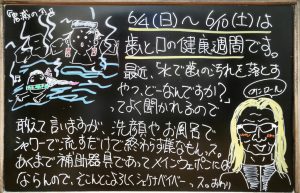 6/4(日)〜6/10(土)は
歯と口の健康週間です。
最近、「水で歯の汚れを落とす
やつ、どーなんですか?」
ってよく聞かれるので
敢えて言いますが、洗顔やお風呂で
シャワーで流すだけで終わる様なもんっス。
あくまで補助器具であってメインウェポンには
ならんので、そこんとこよろしく